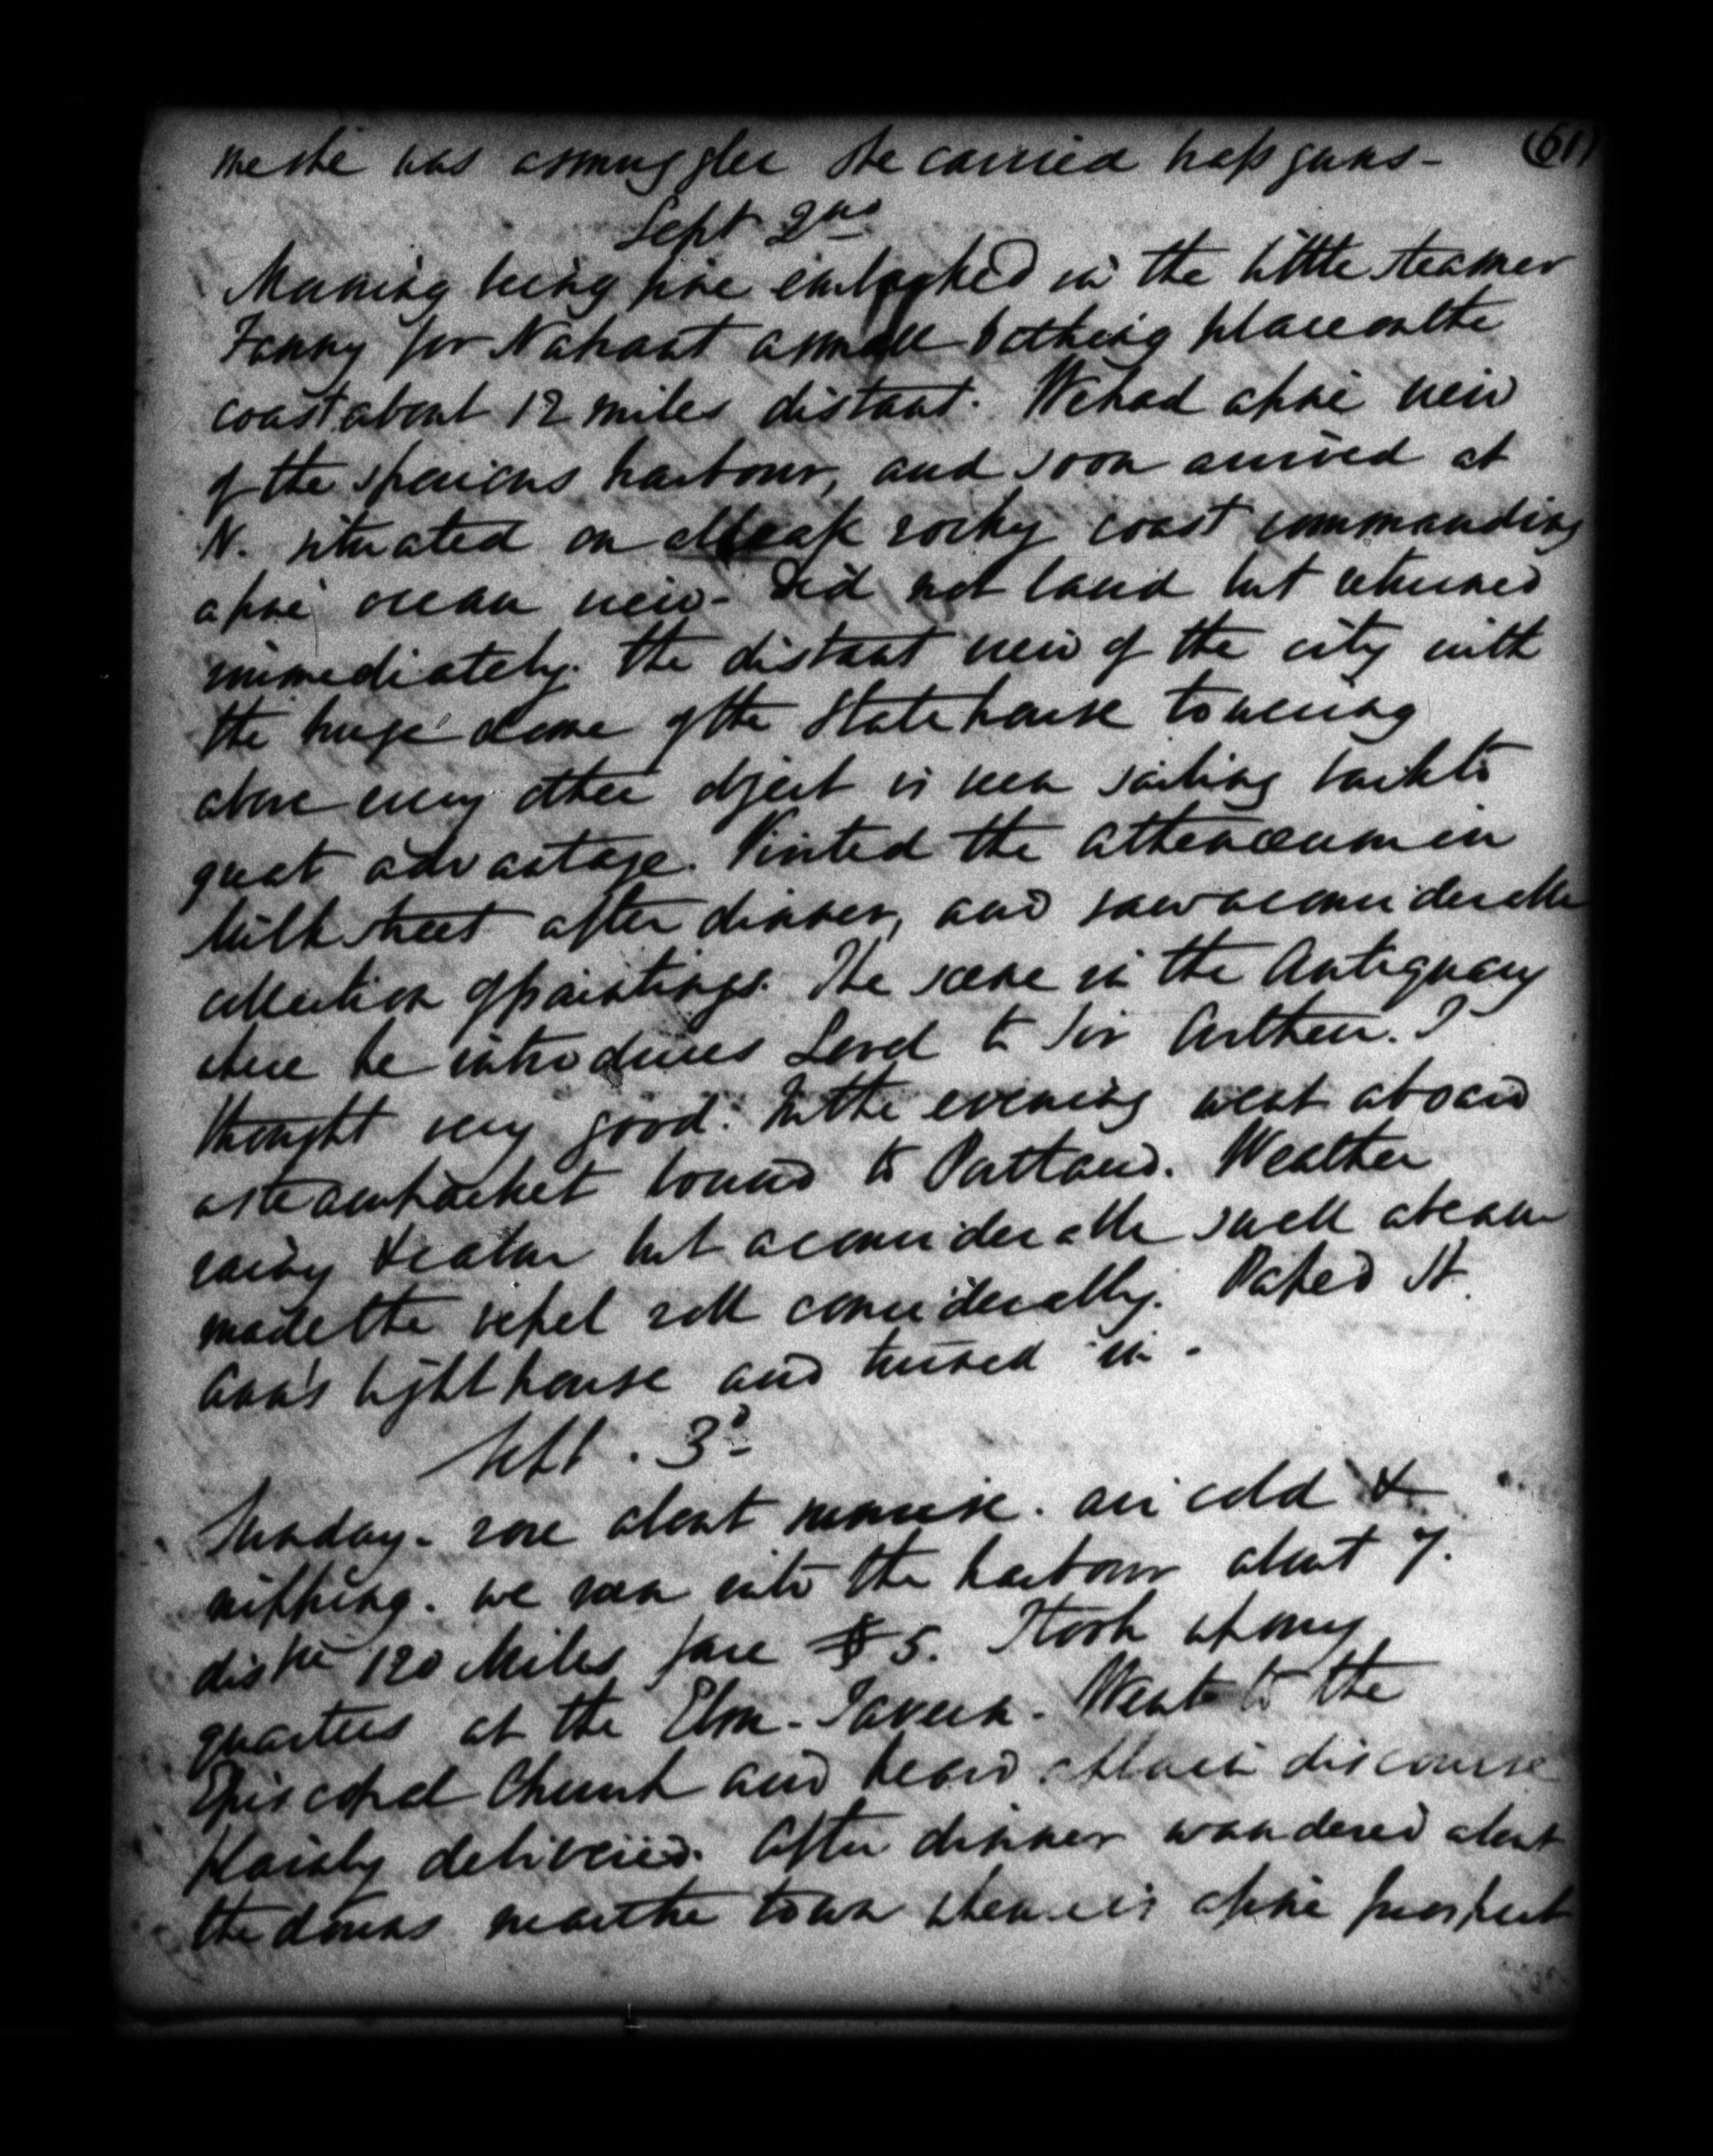 me she was a smuggler she carried brass guns - (61)
Sept 2nd
Morning being fine embarked in the little steamer
Fanny for Nahant a small bathing place on the
coast about 12 miles distant. We had a fine view
of the spacious harbour, and soon arrived at
N. situated on a bleak rocky coast commanding
a fine ocean view - did not land but returned
immediately. the distant view of the city with
the huge dome of the State house towering
above every other object is seen sailing back to
great advantage. Visited the Athenæum in
Milk street after dinner, and saw a considerable
collection of paintings. The scene in the Antiquary
where he introduces Lovel to Sir Arthur. I
thought very good. In the evening went aboard
a steampacket bound to Portland. Weather
rainy & calm but a considerable swell abeam
made the vessel roll considerably. Passed St.
Ann's lighthouse and turned in -
Sept. 3d
Sunday - rose about sunrise. air cold &
nipping. we ran into the harbour about 7.
distce 120 Miles fare $5. I took up my
quarters at the Elm - Tavern - Went to the
Episcopal Church and heard a plain discourse
plainly delivered. After dinner wandered about
the downs near the town where is a fine prospect